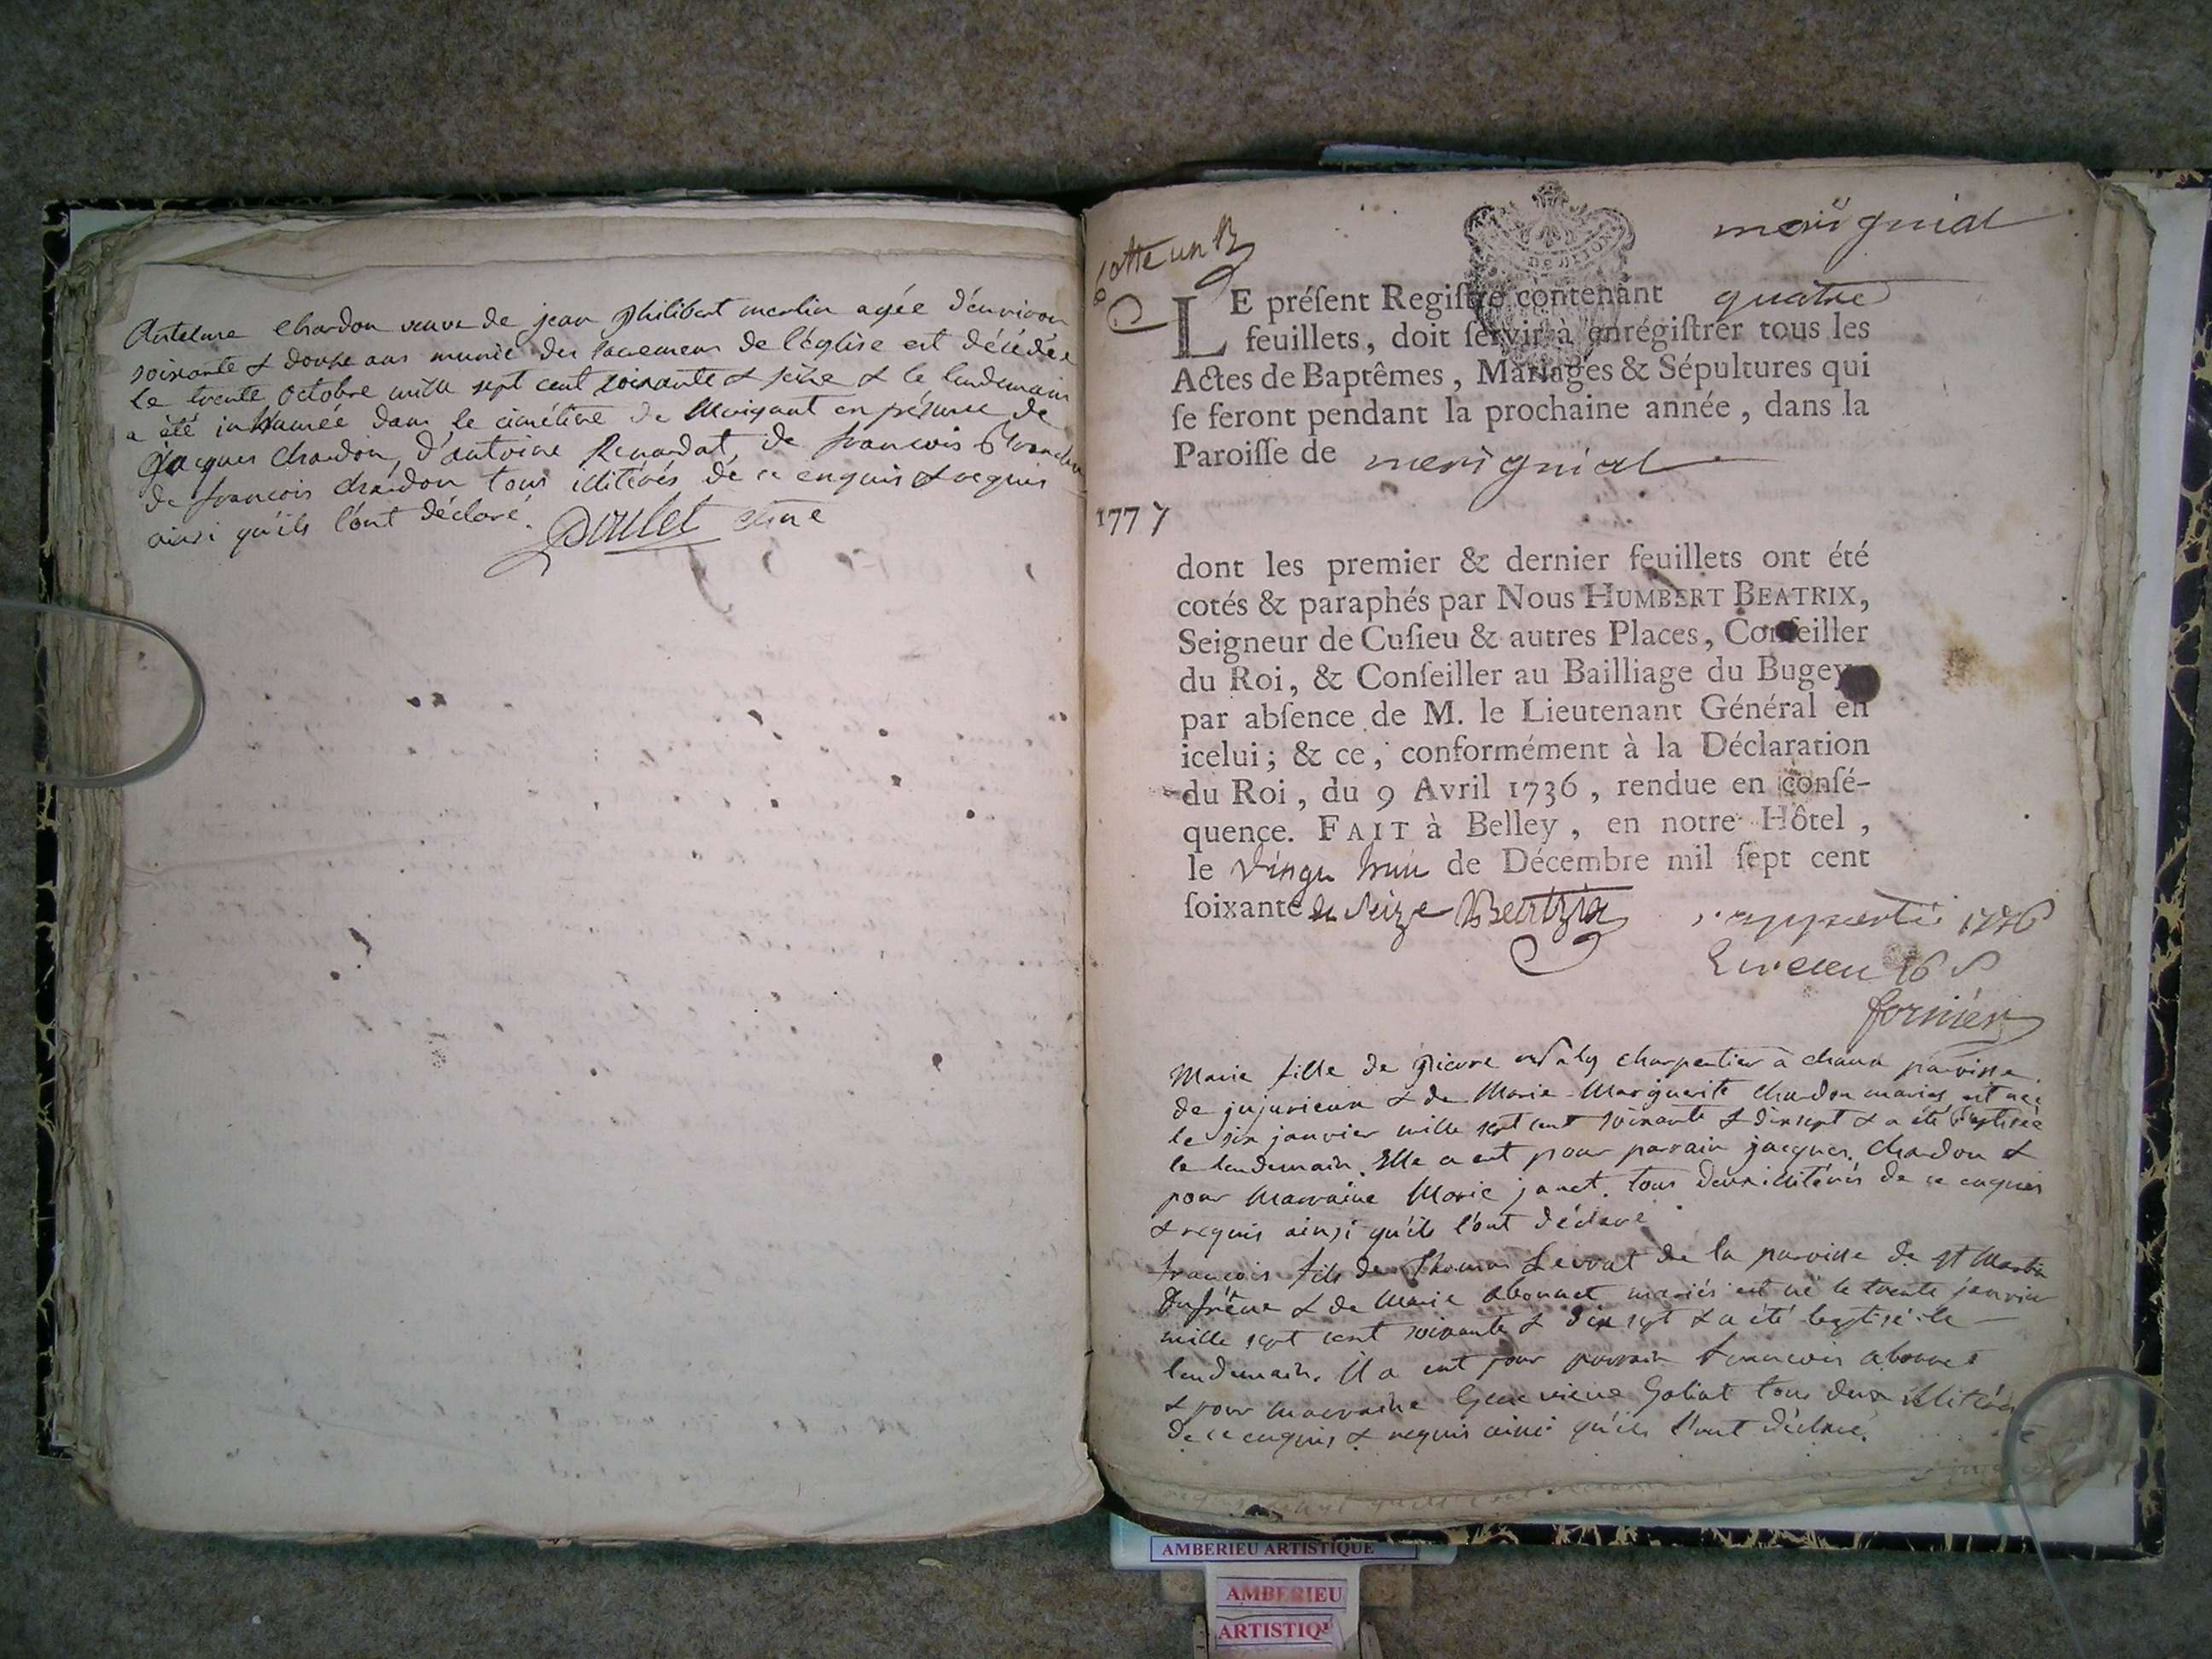 Antelme chardon veuve de jean philibert merlin agée d'environ
soixante & douze ans munie des sacremens de l'église est décédée
le trente octobre mille sept cent soixante & seize & le lendemain
a été inhumée dans le cimétière de en présence de
jacques chardon, d'antoine Renardat, de francois
de francois chardon tous illitérés de ce enquis & requis
ainsi qu'ils l'ont déclaré.
curé
cotte un B
merignial
LE préſent Regiſtre contenant quatre
feuillets, doit ſervir à enrégiſtrer tous les
Actes de Baptêmes, Mariages & Sépultures qui
ſe feront pendant la prochaine année, dans la
Paroiſſe de merignial
1777
dont les premier & dernier feuillets ont été
cotés & paraphés par Nous HUMBERT BEATRIX,
Seigneur de Cuſieu & autres Places, Conſeiller
du Roi, & Conſeiller au Bailliage du Bugey
par abſence de M. le Lieutenant Général en
icelui; & ce, conformément à la Déclaration
du Roi, du 9 Avril 1736, rendue en conſé-
quence. FAIT à Belley, en notre Hôtel,
le de Décembre mil ſept cent
ſoixante & Seize Beatrix
1776
Reçeu 16 s
fornier
Marie fille de pierre charpentier à chaux paroisse
de jujurieux & de Marie Marguerite chardon mariés est née
le six janvier mille sept cent soixante & dixsept & a été baptisée
le lendemain. Elle a eut pour parrain jacques chardon &
pour Marraine Marie janet. tous deux illitérés de ce enquis
& requis ainsi qu'ils l'ont déclaré.
francois fils de Thomas Levrat de la paroisse de st Martin
Dufrêne & de Marie abonnet mariés est né le trente janvier
mille sept cent soixante & dix sept & a été baptisé le
lendemain. Il a eut pour parrain francois abonnet
& pour marraine Genevieve Goliat tous deux illitérés
de ce enquis & requis ainsi qu'ils l'ont déclaré.
AMBERIEU ARTISTIQUE
AMBERIEU
ARTISTIQ